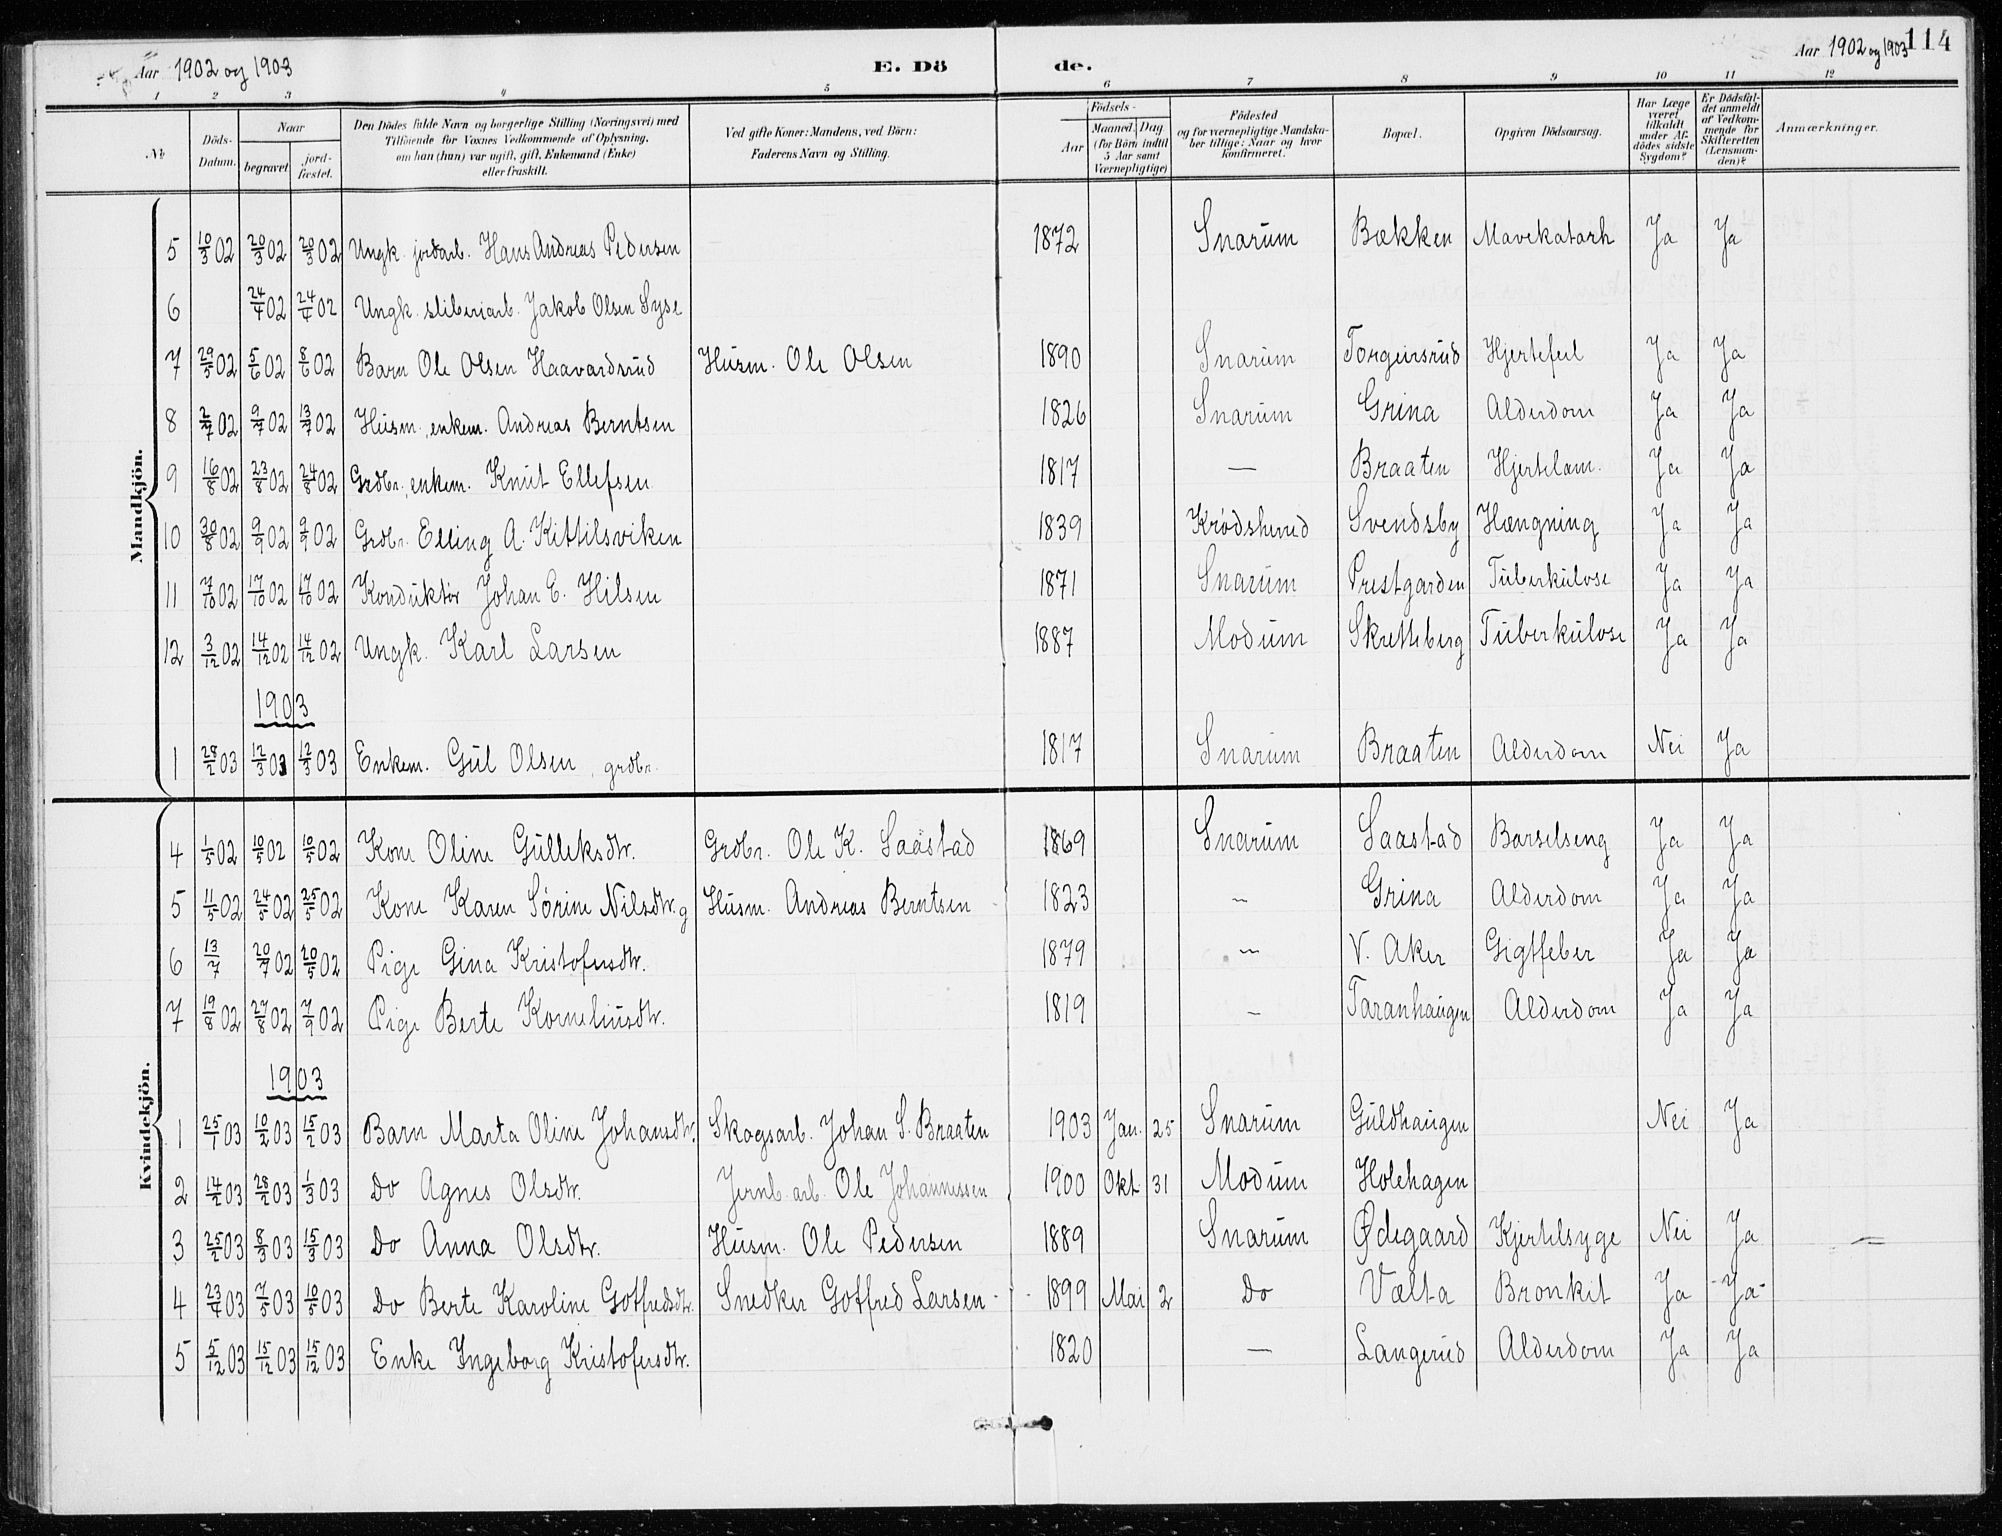 Aar 1902 og 1903 E. Dö de. Aar 1902 og 1903 114
1 2 3 4 5 6 7 8 9 10 11 12
No Döds-Datum. Naar begravet jord-fæstet. Den Dödes fulde Navn og borgerlige Stilling (Næringsvei) med Tilföiende for Voxnes Vedkommende af Oplysning, om han (hun) var ugift, gift, Enkemand (Enke) eller fraskilt. Ved gifte Koner: Mandens, ved Börn: Faderens Navn og Stilling. Födsels- Aar Maaned. Dag (for Börn indtil 5 Aar samt Værnepligtige) Födested og for værnepligtige Mandska-ber tillige: Naar og hvor konfirmeret. Bopæl. Opgiven Dödsaarsag. Har Læge været tilkaldt under Af-dödes sidste Sygdom? Er Dödsfal-det anmeldt af Vedkom-mende for Skifteretten (Lensman-den)? Anmærkninger.
Mandkjön.
5 10/3 02 20/3 02 20/3 02 Ungk. jordarb. Hans Andreas Pedersen 1872 Snarum Bækken Mavekatarh Ja Ja
6 24/4 02 24/4 02 Ungk. sliberiarb. Jakob Olsen Syse
7 29/5 02 5/6 02 8/6 02 Barn Ole Olsen Haavardsrud Husm. Ole Olsen 1890 Snarum Torgeirsrud Hjertefeil Ja Ja
8 2/7 02 9/7 02 13/7 02 Husm., enkem. Andreas Berntsen 1826 Snarum Grina Alderdom Ja Ja
9 16/8 02 23/8 02 24/8 02 Grdbr., enkem. Knut Ellefsen 1817 — Braaten Hjertelam. Ja Ja
10 30/8 02 9/9 02 9/9 02 Grdbr. Elling A. Kittilsviken 1839 Krödsherred Svendsby Hængning Ja Ja
11 7/10 02 17/10 02 17/10 02 Konduktør Johan E. Hilsen 1871 Snarum Prestgarden Tuberkulose Ja Ja
12 3/12 02 14/12 02 14/12 02 Ungk. Karl Larsen 1887 Modum Skretteberg Tuberkulose Ja Ja
1903
1 28/2 03 12/3 03 12/3 03 Enkem. Gul Olsen, grdbr. 1817 Snarum Braaten Alderdom Nei Ja
Kvindekjön.
4 1/5 02 10/5 02 10/5 02 Kone Oline Gulleksdtr. Grdbr. Ole K. Saastad 1869 Snarum Saastad Barselseng Ja Ja
5 11/5 02 24/5 02 25/5 02 Kone Karen Sørine Nilsdtr. g Husm. Andreas Berntsen 1823 — Grina Alderdom Ja Ja
6 13/7 20/7 02 20/5 02 Pige Gina Kristofersdtr. 1879 — V. Aker Gigtfeber Ja Ja
7 19/8 02 27/8 02 7/9 02 Pige Berte Korneliusdtr. 1819 — Taranhaugen Alderdom Ja Ja
1903
1 25/1 03 10/2 03 15/2 03 Barn Marta Oline Johansdtr. Skogsarb. Johan S. Braaten 1903 Jan. 25 Snarum Guldhaugen Nei Ja
2 14/2 03 28/2 03 1/3 03 Do Agnes Olsdtr. Jernb. arb. Ole Johannessen 1900 Okt 31 Modum Holehagen
3 25/2 03 8/3 03 15/3 03 Do Anna Olsdtr. Husm. Ole Pedersen 1889 Snarum Ødegaard Kjertelsyge Nei Ja
4 23/4 03 7/5 03 10/5 03 Do Berte Karoline Gotfredsdtr. Snedker Gotfred Larsen 1899 Mai 2 Do Vælta Bronkit Ja Ja
5 5/12 03 15/12 03 15/12 03 Enke Ingeborg Kristofersdtr. 1820 — Langerud Alderdom Ja Ja